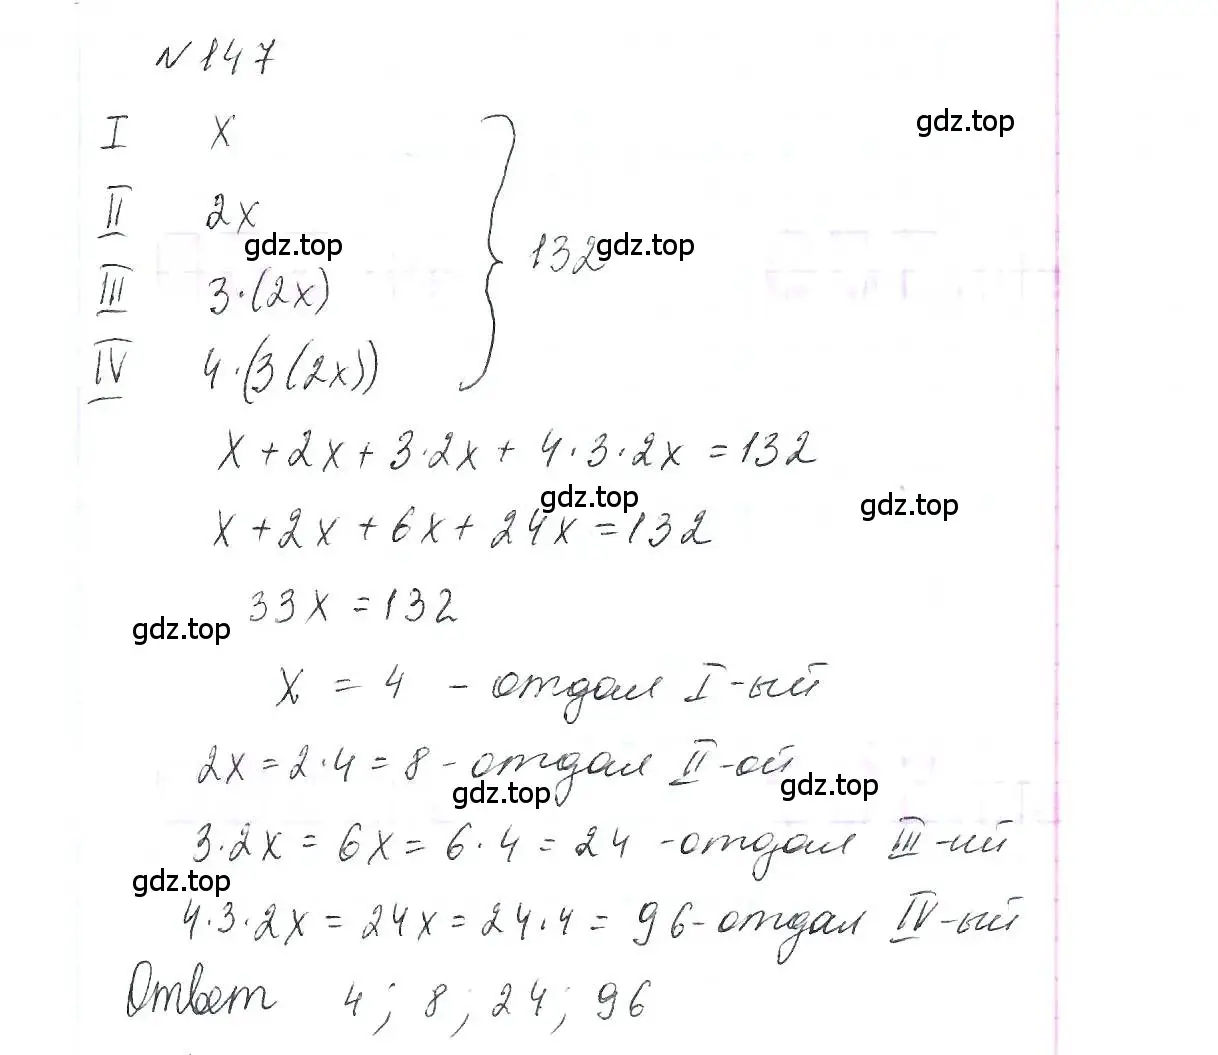 N 147
I x gdz.top
II 2x
gdz.top 132 gdz.top
III 3·(2x)
IV 4·(3(2x))
x + 2x + 3·2x + 4·3·2x = 132
gdz.top gdz.top
x + 2x + 6x + 24x = 132
33x = 132
gdz.top
x = 4 - отдал I-ый
2x = 2·4 = 8 - отдал II-ой
gdz.top gdz.top
3·2x = 6x = 6·4 = 24 - отдал III-ий
gdz.top
4·3·2x = 24x = 24·4 = 96 - отдал IV-ый
Ответ 4; 8; 24; 96